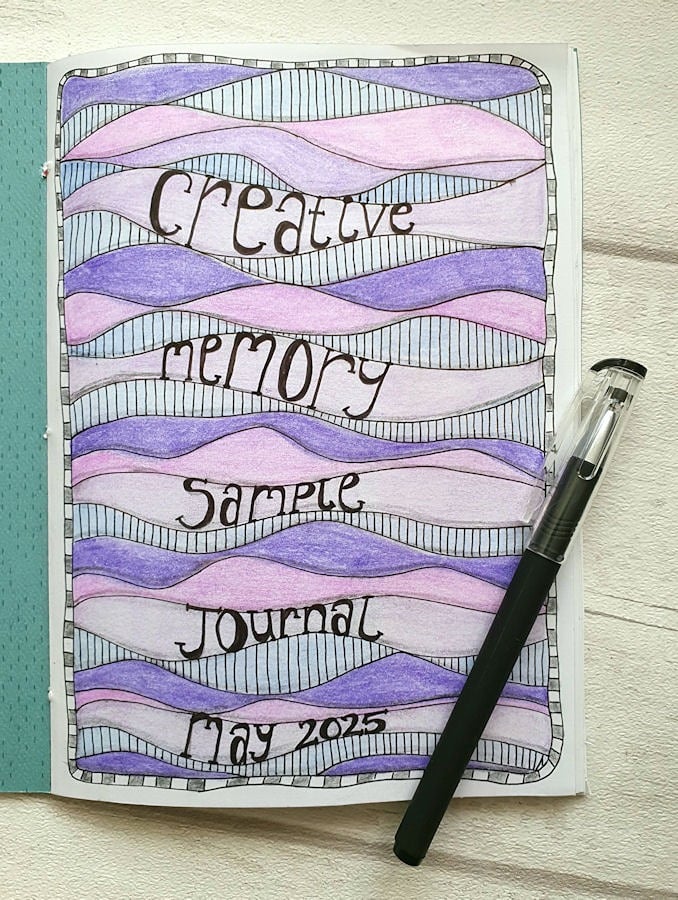 Creative
memory
Sample
Journal
May 2025